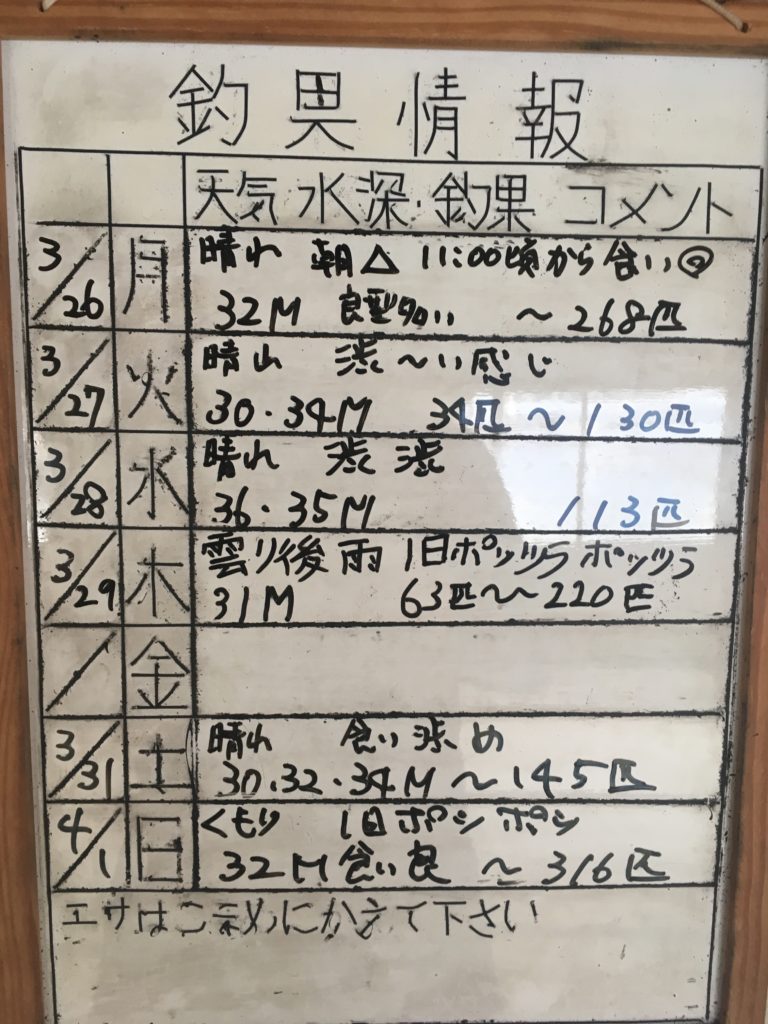 釣果情報
天気 水深・釣果 コメント
3/26 月 晴れ 朝△ 11:00頃から食い◎
32M 良型多い 〜268匹
3/27 火 晴れ 渋〜い感じ
30・34M 34匹〜130匹
3/28 水 晴れ 渋渋
36・35M 113匹
3/29 木 雲り後雨 1日ポッツラポッツラ
31M 63匹〜〜220匹
/ 金
3/31 土 晴れ 食い渋め
30.32・34M〜145匹
4/1 日 くもり 1日ポツポツ
32M 食い良 〜316匹
エサはこまめにかえて下さい